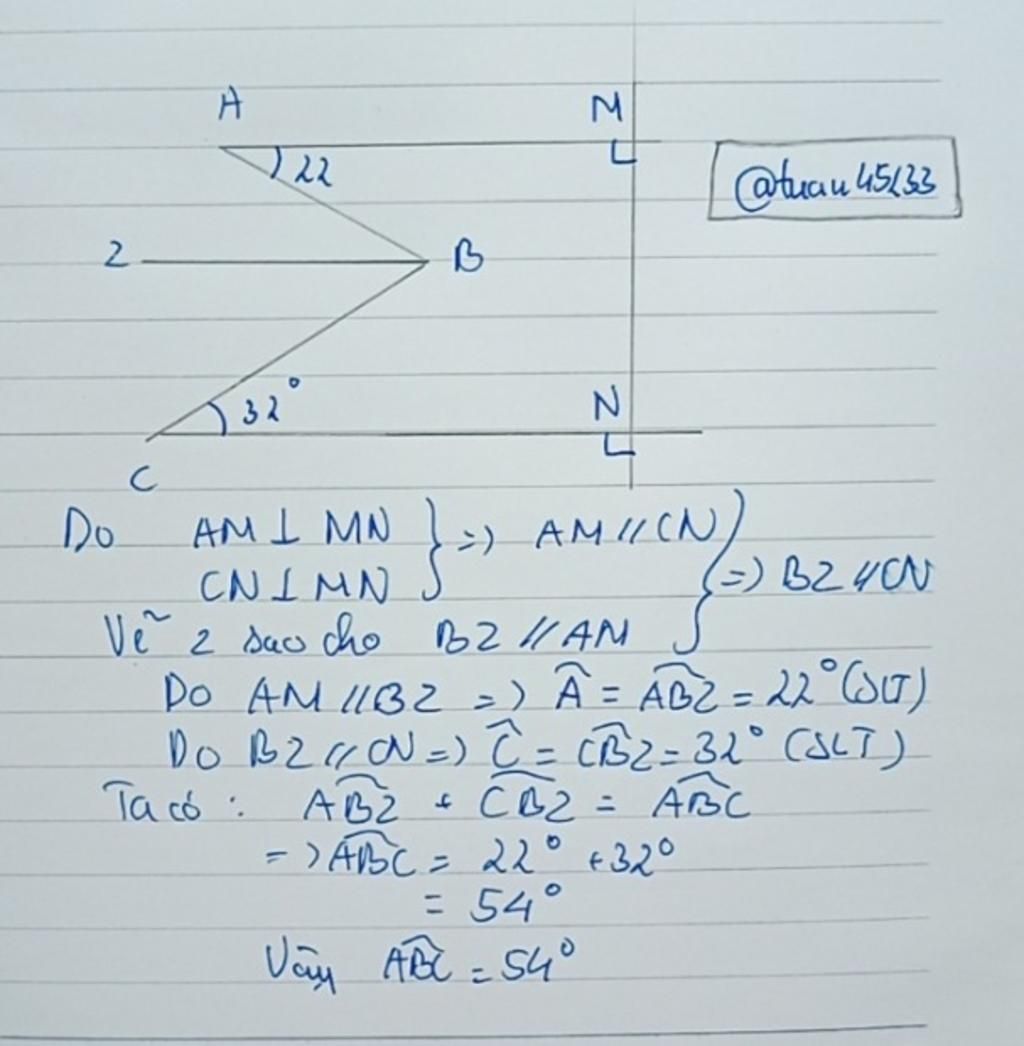 A
M
22
@tuan45233
z
B
32°
N
C
Do AM ⊥ MN } => AM // CN
CN ⊥ MN } => Bz // CN
Vẽ z sao cho Bz // AM
Do AM // Bz => Â = ABz = 22° (SLT)
Do Bz // CN => Ĉ = CBz = 32° (SLT)
Ta có : ABz + CBz = ABC
=> ABC = 22° + 32°
= 54°
Vậy ABC = 54°